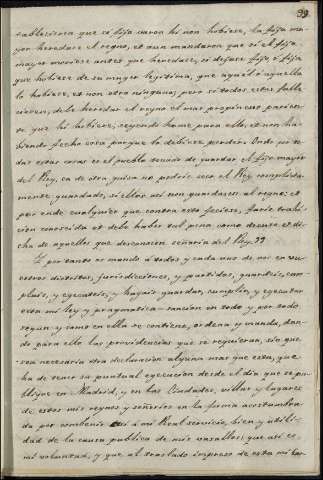 99
tablecieron que si fijo varon hi non hobiese, la fija ma-
yor heredase el regno, et aun mandaron que si el fijo
mayor moriese antes que heredase, si dejase fijo ó fija
que hobiese de su muger legitima, que aquel ó aquella
lo hobiese, et non otro ninguno; pero si todos estos falle-
ciesen, debe heredar el reyno el mas propincuo parien-
te que hi hobiere, seyendo home para ello, et non ha-
biendo fecho cosa porque lo debiese perder. Onde por to-
das estas cosas es el pueblo tenudo de guardar el fijo mayor
del Rey, ca de otra guisa no podrie seer el Rey complida-
mente guardado, si ellos asi non guardasen al regno: et
por ende cualquier que contra esto feciese, farie traici-
on conoscida et debe haber tal pena como desuso es di-
cha de aquellos que desconocen señorio del Rey.
Y por tanto os mando á todos y cada uno de vos en vu-
estros distritos, jurisdicciones, y partidos, guardeis, cum-
plais, y ejecuteis, y hagais guardar, cumplir, y ejecutar
esta mi ley y pragmatica-sancion en todo y por todo,
segun y como en ella se contiene, ordena y manda, dan-
do para ello las providencias que se requieran, sin que
sea necesaria otra declaracion alguna mas que esta, que
ha de tener su puntual ejecucion desde el dia que se pu-
blique en Madrid, y en las Ciudades, villas y lugares
de estos mis reynos y señorios en la forma acostumbra-
da por convenir asi á mi Real servicio, bien y utili-
dad de la causa publica de mis vasallos; que asi es
mi voluntad, y que al traslado impreso de esta mi car-